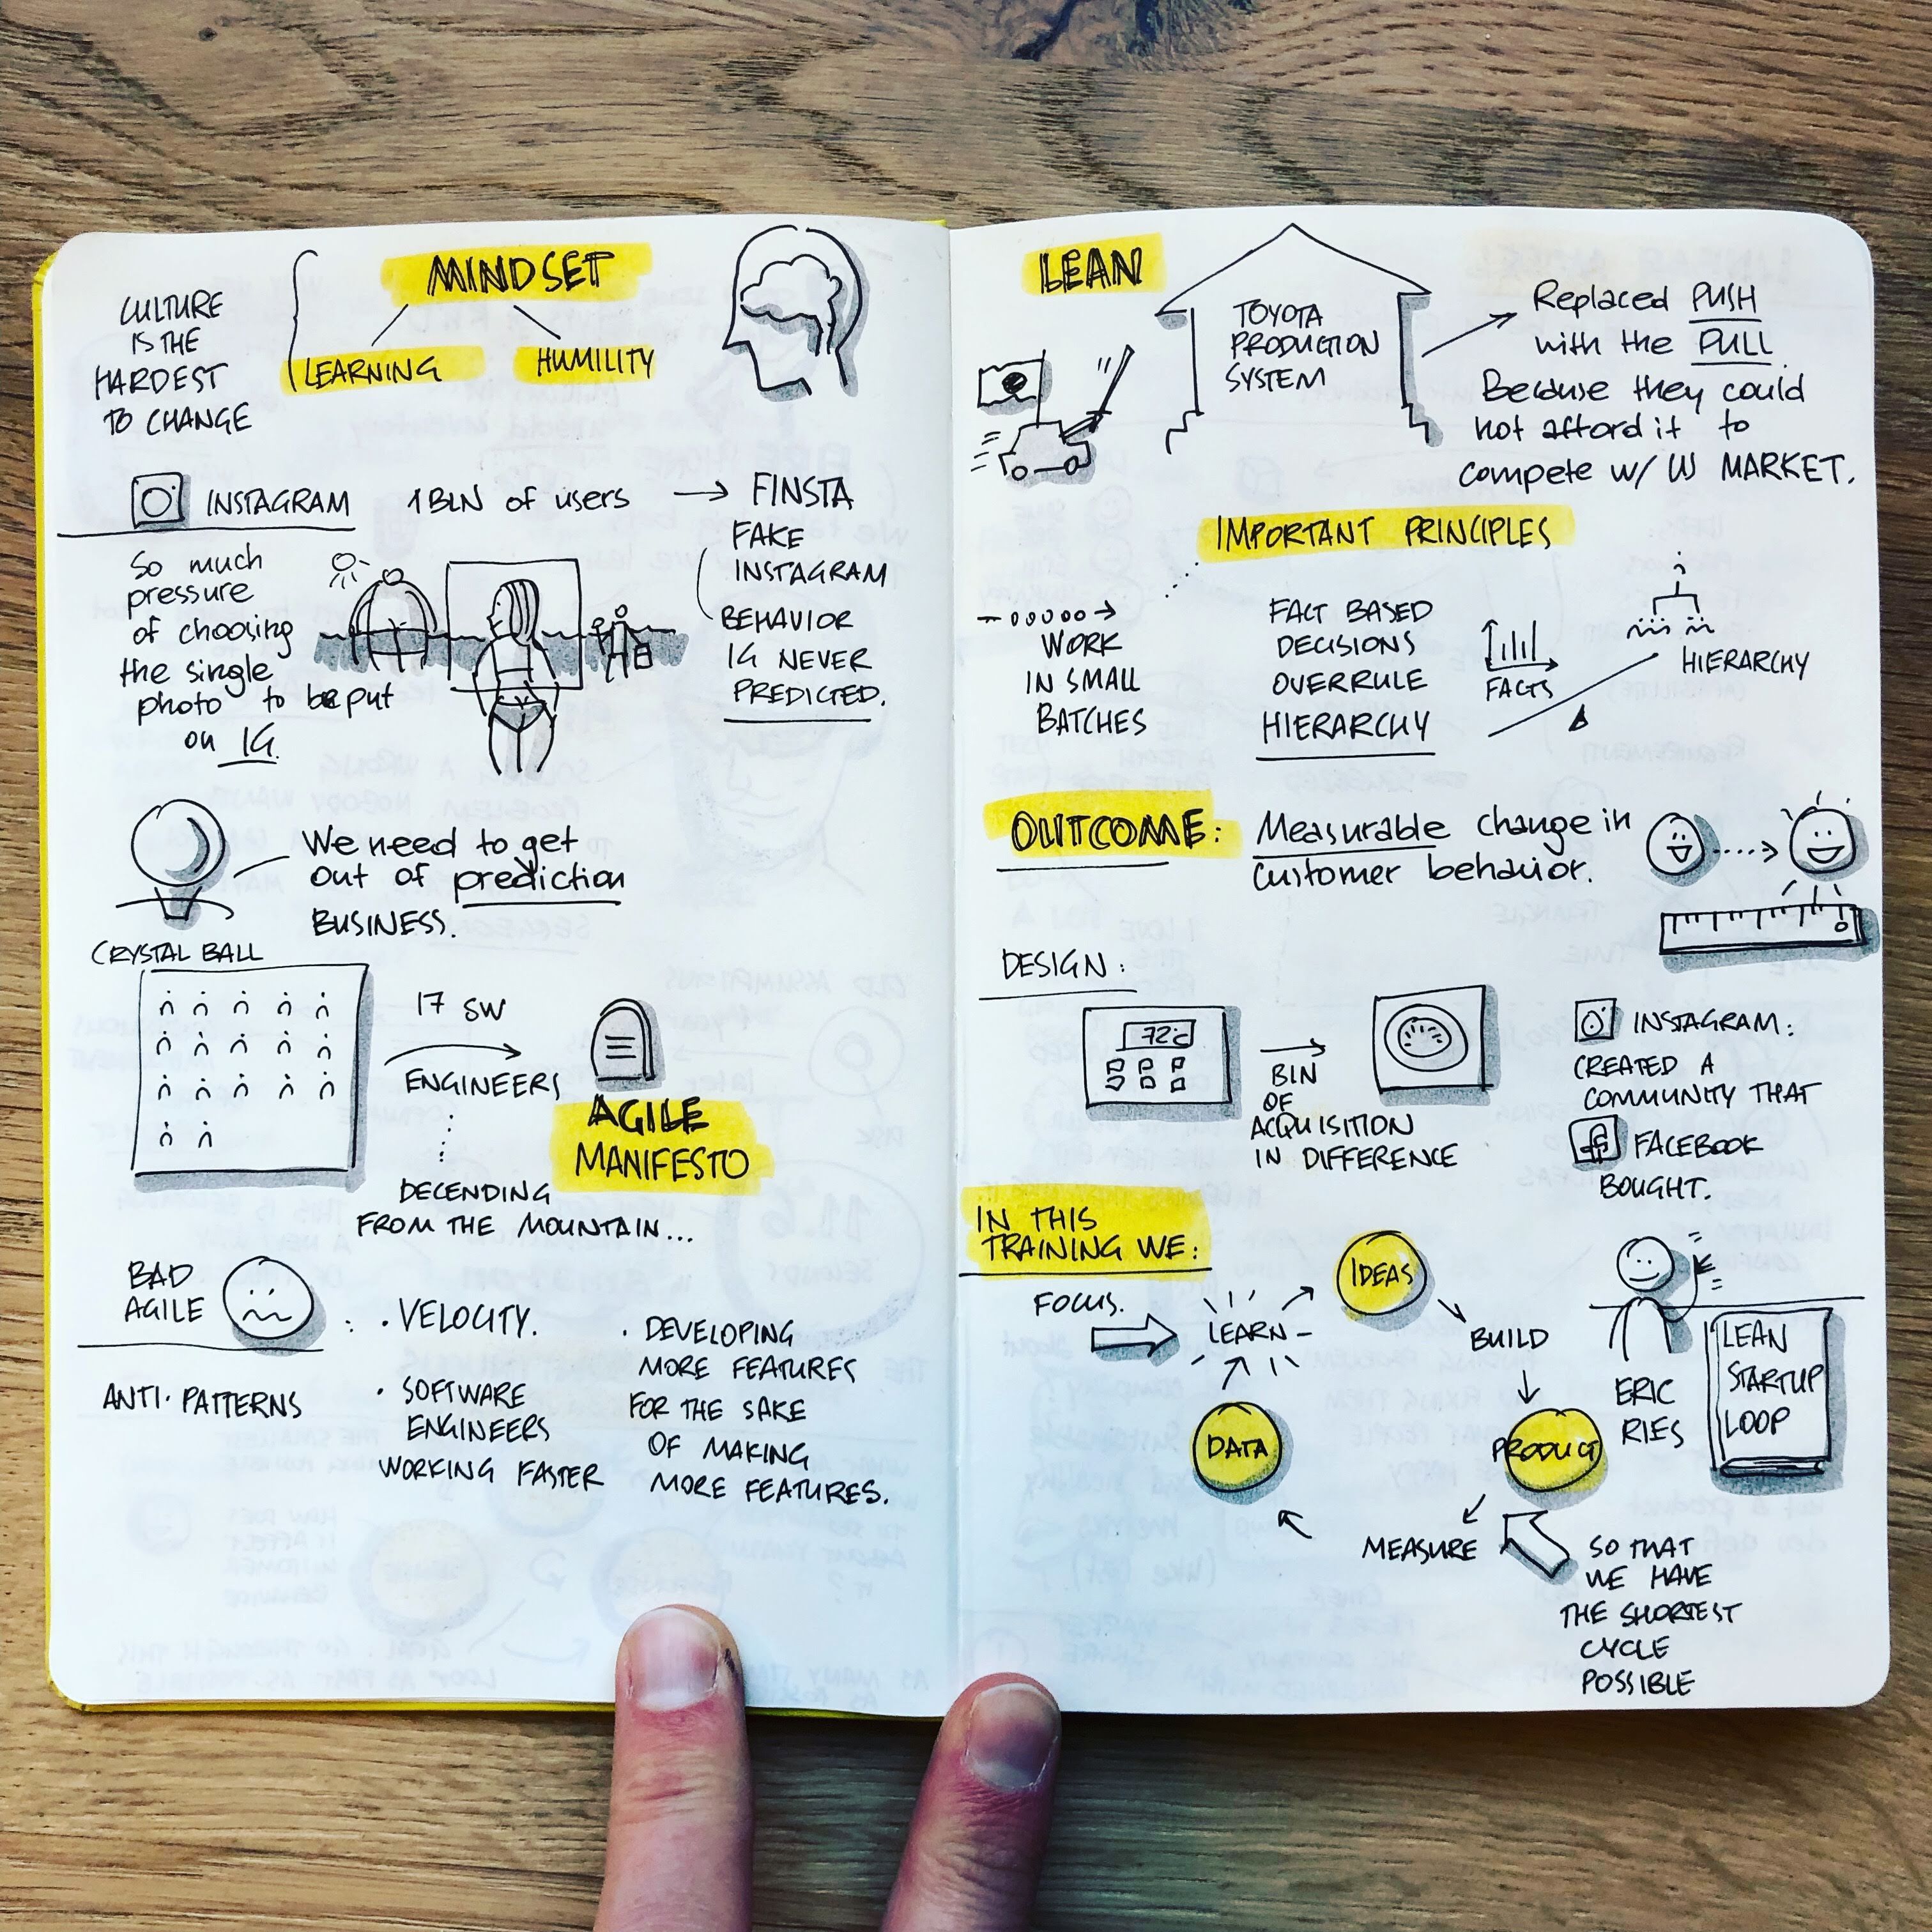 MINDSET
LEARNING
HUMILITY
CULTURE
IS THE
HARDEST
TO CHANGE
INSTAGRAM
1 BLN of users
So much
pressure
of choosing
the single
photo to be put
on IG.
FINSTA
FAKE
INSTAGRAM
BEHAVIOR
IG NEVER
PREDICTED.
We need to get
out of prediction
BUSINESS.
CRYSTAL BALL
17 SW
ENGINEERS
AGILE
MANIFESTO
DECENDING
FROM THE MOUNTAIN...
BAD
AGILE
:
ANTI-PATTERNS
• VELOCITY.
• SOFTWARE
ENGINEERS
WORKING FASTER
• DEVELOPING
MORE FEATURES
FOR THE SAKE
OF MAKING
MORE FEATURES.
LEAN
TOYOTA
PRODUCTION
SYSTEM
Replaced PUSH
with the PULL
Because they could
not afford it to
compete w/ W MARKET.
IMPORTANT PRINCIPLES
WORK
IN SMALL
BATCHES
FACT BASED
DECISIONS
OVERRULE
HIERARCHY
FACTS
HIERARCHY
OUTCOME:
Measurable change in
customer behavior.
DESIGN:
72°
BLN
OF
ACQUISITION
IN DIFFERENCE
INSTAGRAM:
CREATED A
COMMUNITY THAT
FACEBOOK
BOUGHT.
IN THIS
TRAINING WE:
FOCUS.
LEARN
IDEAS
BUILD
PRODUCT
MEASURE
DATA
ERIC
RIES
LEAN
STARTUP
LOOP
SO THAT
WE HAVE
THE SHORTEST
CYCLE
POSSIBLE